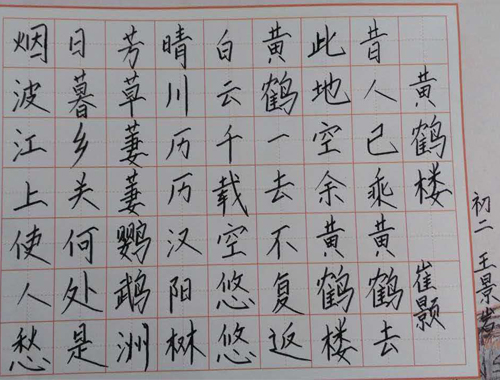 黄鹤楼 崔颢
昔人已乘黄鹤去
此地空余黄鹤楼
黄鹤一去不复返
白云千载空悠悠
晴川历历汉阳树
芳草萋萋鹦鹉洲
日暮乡关何处是
烟波江上使人愁
初二 王景